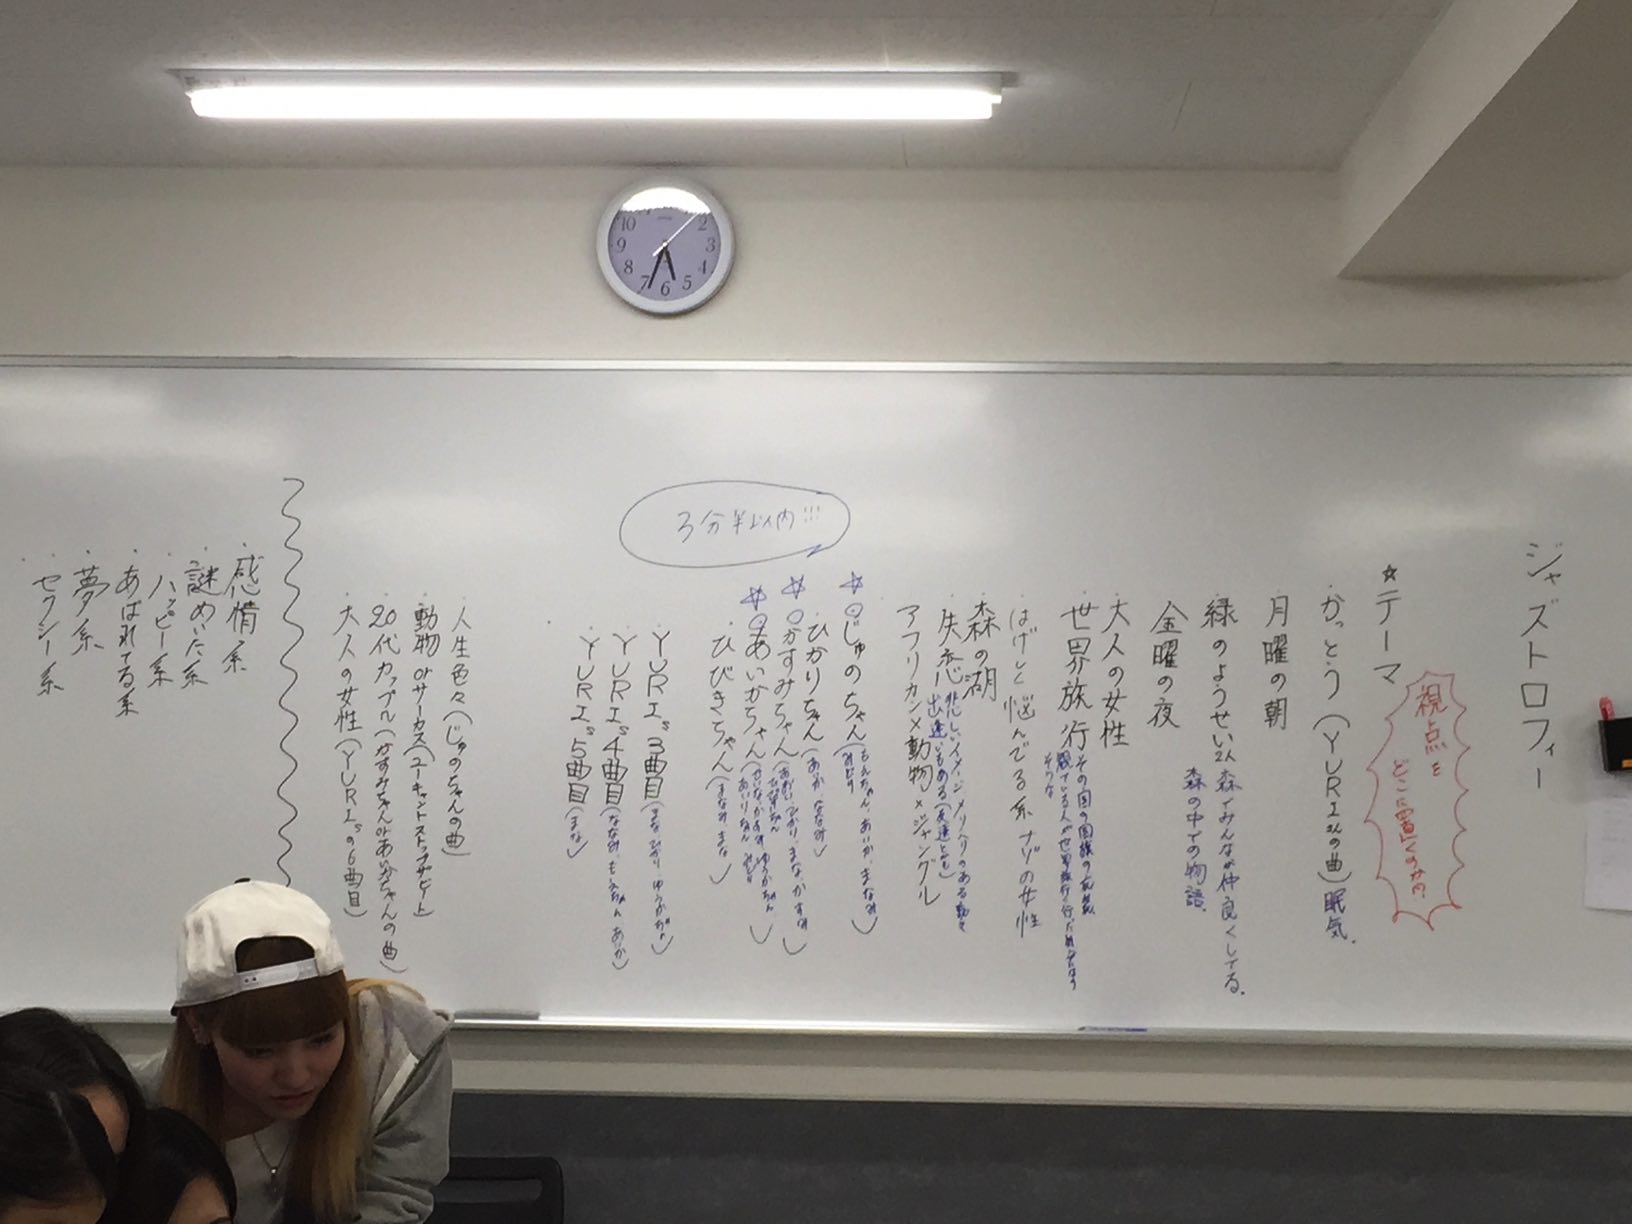 ジャズストロフィー
☆テーマ
視点を
どこに置くのか?!
・かっとう(YURIさんの曲)眠気。
・月曜の朝
・緑のようせい2人 森でみんなが仲良くしてる。
森の中での物語。
・金曜の夜
・大人の女性
・世界旅行 その国の国旗の衣装
観ている人が世界旅行に行った
そうな
・はげしく悩んでる系 ナゾの女性
・森の湖
・失恋 悲しいイメージ メリハリのある
出逢いもある(友達とも)
・アフリカン×動物×ジャングル
3分半以内!!!
☆○じゅのちゃん(もえちゃん、あいか、まなみ
みどり)
・ひかりちゃん(あか、ななみ)
☆○かすみちゃん(あおい、ひかり、まな、かすみ
)
☆○あいかちゃん(
あいりちゃん)
・ひびきちゃん(まなみ まな)
・YURIs3曲目(まな、ひかり、ゆうか)
YURIs4曲目(ななみ、もえちゃん、あいか)
YURIs5曲目(まな)
・人生色々(じゅのちゃんの曲)
・動物orサーカス(ユーキャントストップザビート)
・20代カップル(かすみちゃんorあいかちゃんの曲)
・大人の女性(YURIsの6曲目)
・感情系
・謎めいた系
・ハッピー系
・あばれてる系
・夢系
・セクシー系
10
9
8
7
6
5
4
3
2